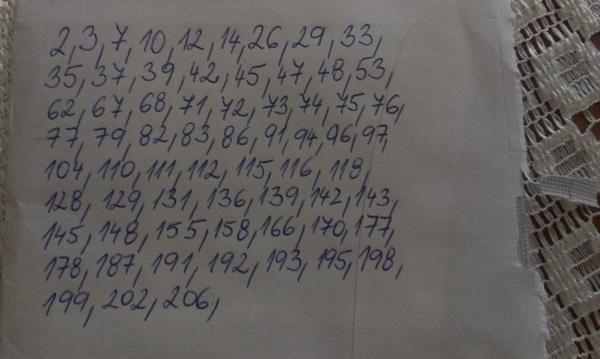 2, 3, 7, 10, 12, 14, 26, 29, 33,
35, 37, 39, 42, 45, 47, 48, 53,
62, 67, 68, 71, 72, 73, 74, 75, 76,
77, 79, 82, 83, 86, 91, 94, 96, 97,
104, 110, 111, 112, 115, 116, 119,
128, 129, 131, 136, 139, 142, 143,
145, 148, 155, 158, 166, 170, 177,
178, 187, 191, 192, 193, 195, 198,
199, 202, 206,